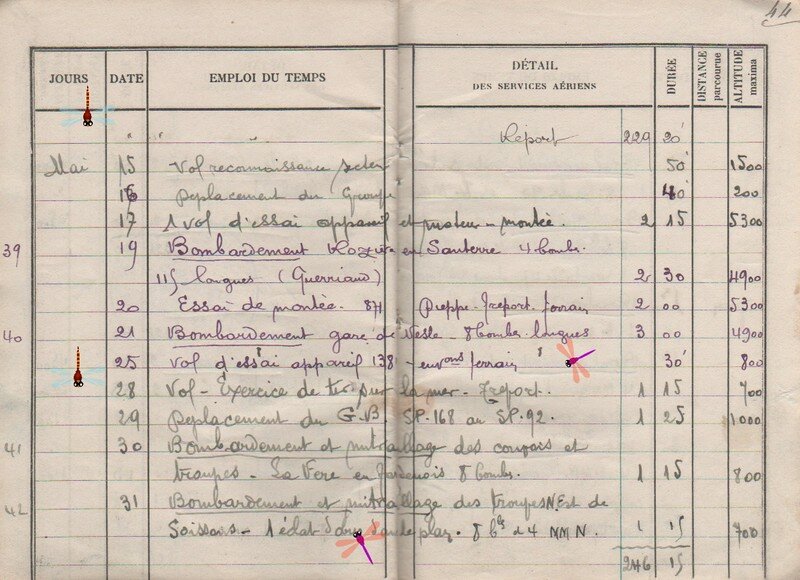 44
JOURS DATE EMPLOI DU TEMPS DÉTAIL DES SERVICES AÉRIENS DURÉE DISTANCE parcourue ALTITUDE maxima
" " " Report 229 20'
Mai 15 Vol reconnaissance secteur 50' 1500
16 Déplacement du Groupe 40' 200
17 1 vol d'essai appareil et moteur - montée. 2 15 5300
39 19 Bombardement en Santerre 4 bombes
115 longues (Guerriaud) 2 30 4900
20 Essai de montée. Dieppe - Treport - terrain 2 00 5300
40 21 Bombardement gare de Nesle - 8 bombes longues 3 00 4900
25 Vol d'essai appareil 138 - envons terrain 30' 800
28 Vol - Exercice de tir sur la mer - Treport. 1 15 700
29 Déplacement du G.B. SP. 168 au SP. 92. 1 25 1000
41 30 Bombardement et mitraillage des convois et
troupes - La Fère en Tardenois 8 bombes. 1 15 800
42 31 Bombardement et mitraillage des troupes N.E st de
Soissons - 1 éclat dans 8 bes d 4 MM N. 1 15 700
246 15